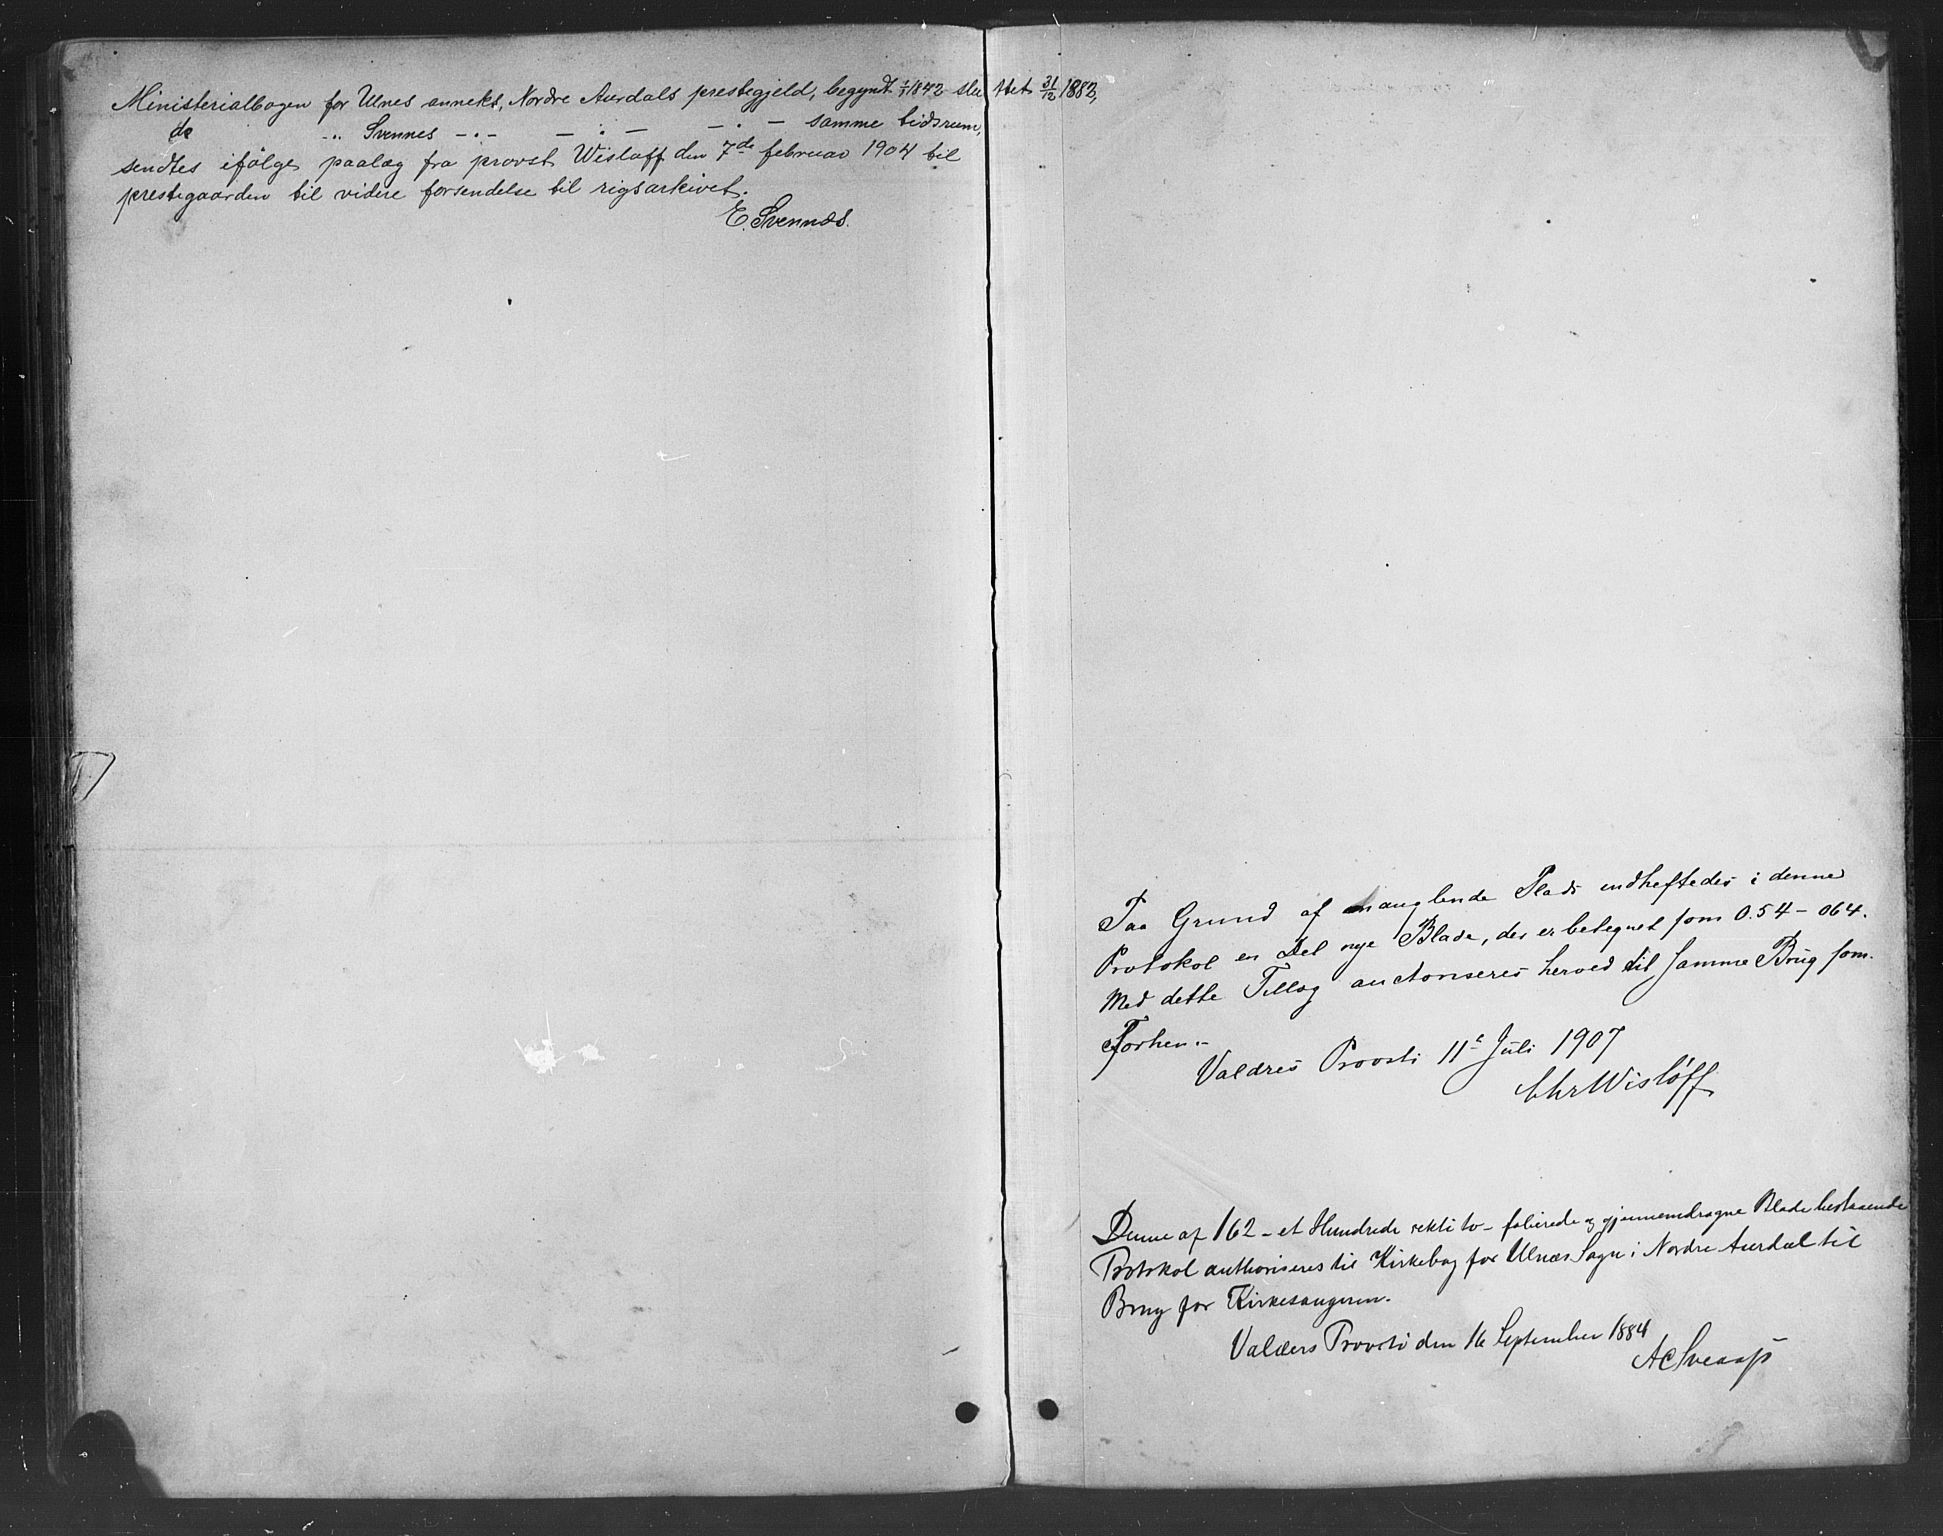 Ministerialbogen for Ulnes anneks, Nordre Aurdals prestegjeld, begyndt 1/1 1842 sluttet 31/12 1882,
do -"- Svennes -"- - " - - " - samme tidsrum,
sendtes ifølge paalæg fra provst Wisløff den 7de februar 1904 til
prestegaarden til videre forsendelse til rigsarkivet.
E. Svennæs.
Paa Grund af manglende Plads indheftedes i denne
Protokol en Del nye Blade, der er betegnet som 0.54 - 064.
Med dette Tillæg auctoriseres herved til samme Brug som
Forhen.-
Valdres Provsti 11te Juli 1907
Chr Wisløff
Denne af 162 - et Hundrede sekti to - folierede og gjennemdragne Blade bestaaende
Protokol authoriseres til Kirkebog for Ulnæs Sogn i Nordre Aurdal til
Brug for Kirkesangeren.
Valders Provsti den 16 September 1884